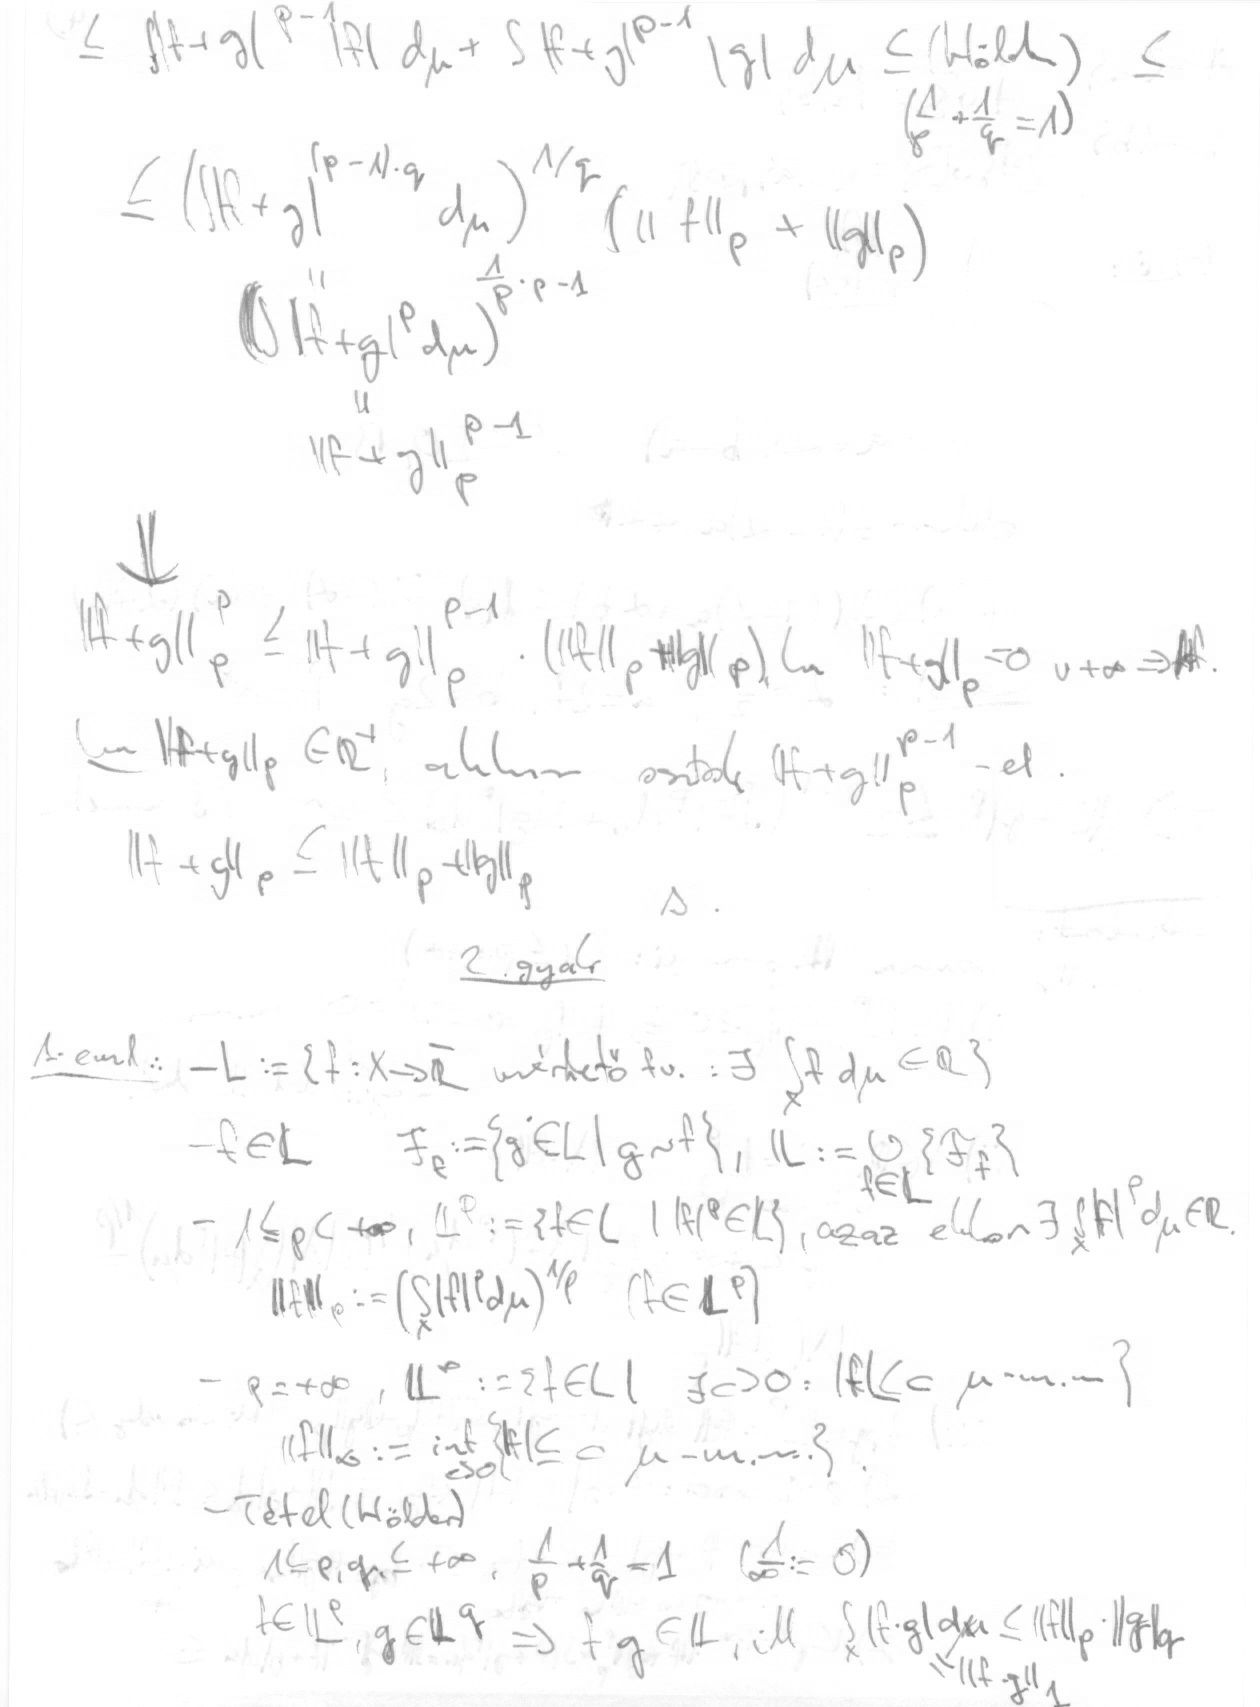 ≤ ∫|f+g|^{p-1}|f| dμ + ∫|f+g|^{p-1} |g| dμ ≤ (Hölder) ≤
(1/p + 1/q = 1)
≤ (∫|f+g|^{(p-1)·q} dμ)^{1/q} (||f||_p + ||g||_p)
||
(∫|f+g|^p dμ)^{1/p · p-1}
||
||f+g||_p^{p-1}
⇓
||f+g||_p^p ≤ ||f+g||_p^{p-1} · (||f||_p + ||g||_p), ha ||f+g||_p = 0 v +∞ ⇒
ha ||f+g||_p ∈ ℝ^+, akkor osztok ||f+g||_p^{p-1} -el.
||f+g||_p ≤ ||f||_p + ||g||_p
2. gyak
1. eml.: - L := {f: X → ℝ̄ mérhető fv. : ∃ ∫_X f dμ ∈ ℝ}
- f ∈ L F_f := {g ∈ L | g ~ f}, 𝕃 := ∪_{f∈L} {F_f}
- 1 ≤ p < +∞, 𝕃^p := {f ∈ L | |f|^p ∈ L}, azaz ekkor ∃ ∫_X |f|^p dμ ∈ ℝ.
||f||_p := (∫_X |f|^p dμ)^{1/p} (f ∈ 𝕃^p)
- p = +∞, 𝕃^∞ := {f ∈ L | ∃ c > 0 : |f| ≤ c μ-m.m}
||f||_∞ := inf_{c>0} {|f| ≤ c μ-m.m.}.
- Tétel (Hölder)
1 ≤ p, q ≤ +∞, 1/p + 1/q = 1 (1/∞ := 0)
f ∈ 𝕃^p, g ∈ 𝕃^q ⇒ f g ∈ 𝕃, ill ∫_X |f·g| dμ ≤ ||f||_p · ||g||_q
= ||f·g||_1